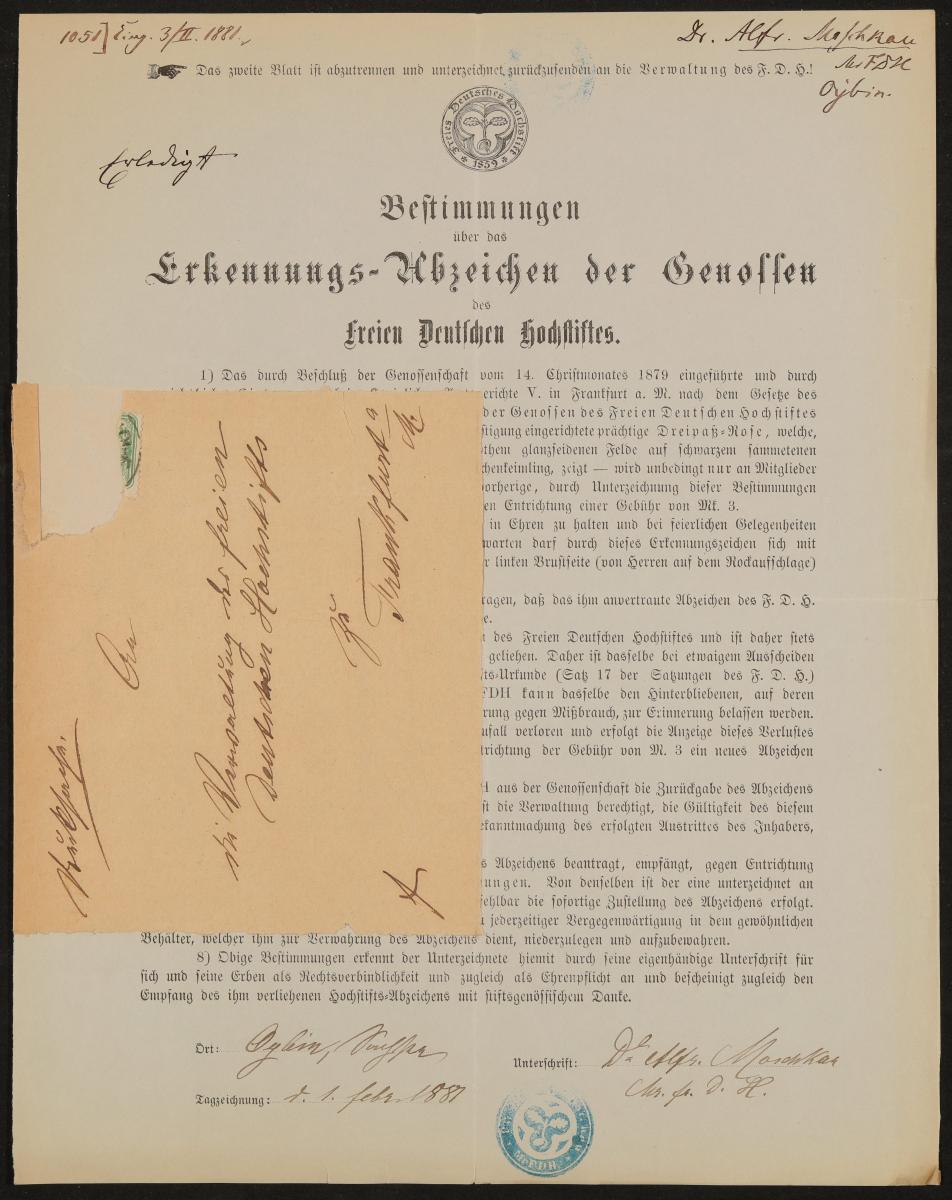 1051] Eing. 3/II. 1881.
Dr. Alfr. Moschkau
MsFDH
Oybin.
Das zweite Blatt ist abzutrennen und unterzeichnet zurückzusenden an die Verwaltung des F. D. H.!
Freies Deutsches Hochstift
* 1859 *
Erledigt
Bestimmungen
über das
Erkennungs-Abzeichen der Genossen
des
Freien Deutschen Hochstiftes.
1) Das durch Beschluß der Genossenschaft vom 14. Christmonates 1879 eingeführte und durch
gerichte V. in Frankfurt a. M. nach dem Gesetze des
der Genossen des Freien Deutschen Hochstiftes
stigung eingerichtete prächtige Dreipaß-Rose, welche,
them glanzseidenen Felde auf schwarzem sammetenen
chenkeimling, zeigt — wird unbedingt nur an Mitglieder
vorherige, durch Unterzeichnung dieser Bestimmungen
en Entrichtung einer Gebühr von Mk. 3.
in Ehren zu halten und bei feierlichen Gelegenheiten
warten darf durch dieses Erkennungszeichen sich mit
r linken Brustseite (von Herren auf dem Rockaufschlage)
ragen, daß das ihm anvertraute Abzeichen des F. D. H.
e.
des Freien Deutschen Hochstiftes und ist daher stets
geliehen. Daher ist dasselbe bei etwaigem Ausscheiden
ts-Urkunde (Satz 17 der Satzungen des F. D. H.)
FDH kann dasselbe den Hinterbliebenen, auf deren
rung gegen Mißbrauch, zur Erinnerung belassen werden.
ufall verloren und erfolgt die Anzeige dieses Verlustes
trichtung der Gebühr von M. 3 ein neues Abzeichen
H aus der Genossenschaft die Zurückgabe des Abzeichens
st die Verwaltung berechtigt, die Gültigkeit des diesem
ekanntmachung des erfolgten Austrittes des Inhabers,
s Abzeichens beantragt, empfängt, gegen Entrichtung
nungen. Von denselben ist der eine unterzeichnet an
fehlbar die sofortige Zustellung des Abzeichens erfolgt.
u jederzeitiger Vergegenwärtigung in dem gewöhnlichen
Behälter, welcher ihm zur Verwahrung des Abzeichens dient, niederzulegen und aufzubewahren.
8) Obige Bestimmungen erkennt der Unterzeichnete hiemit durch seine eigenhändige Unterschrift für
sich und seine Erben als Rechtsverbindlichkeit und zugleich als Ehrenpflicht an und bescheinigt zugleich den
Empfang des ihm verliehenen Hochstifts-Abzeichens mit stiftsgenössischem Danke.
Ort: Oybin,
Tagzeichnung: d. 1. febr. 1881
Unterschrift: Dr Alfr. Moschkau
Mr. fr. D. H.
MsFDH
An
die Verwaltung des freien
Deutschen Hochstifts
zu
Frankfurt a
M.